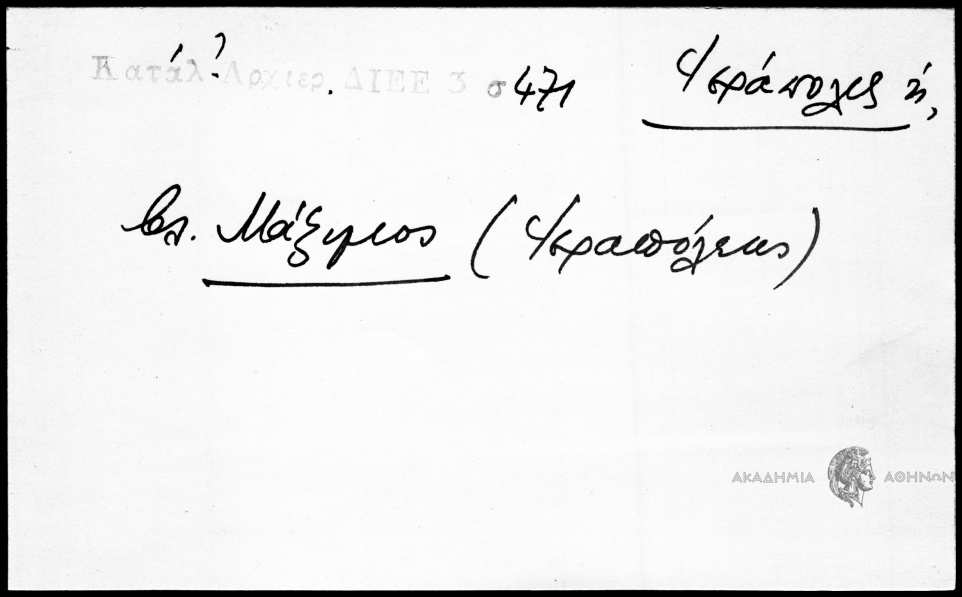 Κατάλ. Αρχιερ. ΔΙΕΕ 3 σ 471 Ἱεράπολις ἡ,
βλ. Μάξιμος (Ἱεραπόλεως)
ΑΚΑΔΗΜΙΑ ΑΘΗΝΩΝ